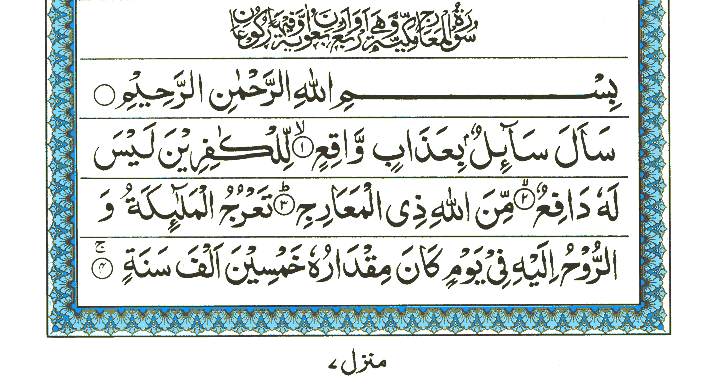 سورة المعارج مكية وهى اربع واربعون اية وفيها ركوعان
بِسْمِ اللهِ الرَّحْمٰنِ الرَّحِيْمِ ○
سَاَلَ سَآئِلٌۢ بِعَذَابٍ وَّاقِعٍ ۙ﴿۱﴾ لِّلْكٰفِرِيْنَ لَيْسَ
لَهٗ دَافِعٌ ۙ﴿۲﴾ مِّنَ اللهِ ذِى الْمَعَارِجِ ؕ﴿۳﴾ تَعْرُجُ الْمَلٰٓئِكَةُ وَ
الرُّوْحُ اِلَيْهِ فِىْ يَوْمٍ كَانَ مِقْدَارُهٗ خَمْسِيْنَ اَلْفَ سَنَةٍ ۚ﴿۴﴾
منزل ۷